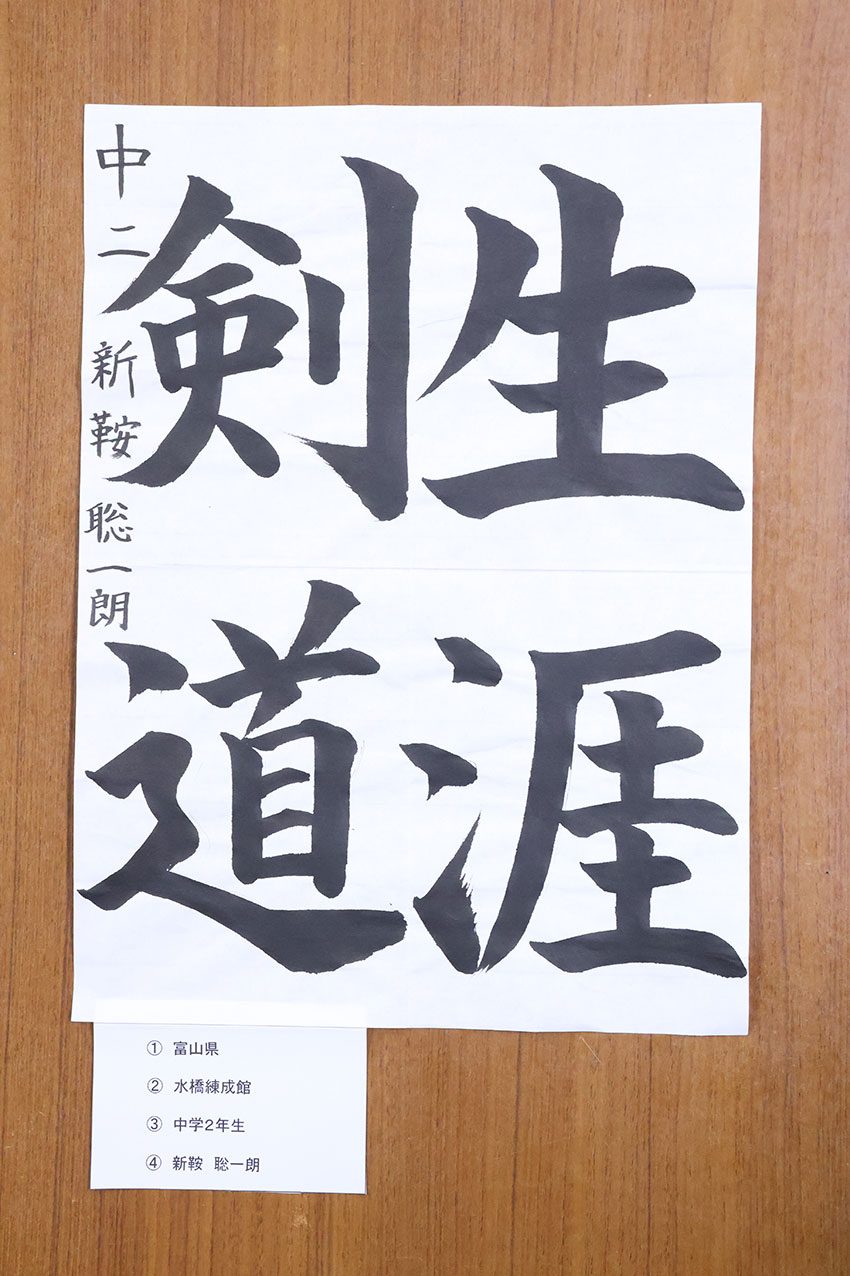 生涯
剣道
中二 新鞍聡一朗
① 富山県
② 水橋練成館
③ 中学2年生
④ 新鞍 聡一朗